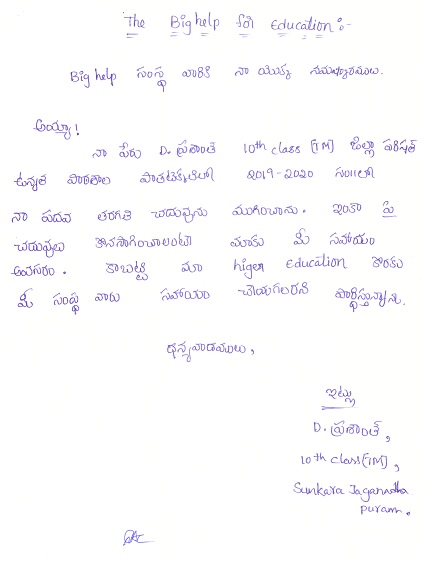 The Big help for Education :-
Big help సంస్థ వారికి నా యొక్క నమస్కారములు.
అయ్యా !
నా పేరు D. ప్రశాంత్ 10th class [TM] జిల్లా పరిషత్
ఉన్నత పాఠశాల 2019-2020 సం॥లో
నా పదవ తరగతి చదువును ముగించాను. ఇంకా పై
చదువులు కొనసాగించాలంటే మాకు మీ సహాయం
అవసరం. కాబట్టి మా higer Education కొరకు
మీ సంస్థ వారు సహాయం చేయగలరని ప్రార్థిస్తున్నాను.
ధన్యవాదములు,
ఇట్లు
D. ప్రశాంత్,
10th class[TM],
Sunkara Jagannadha
puram.